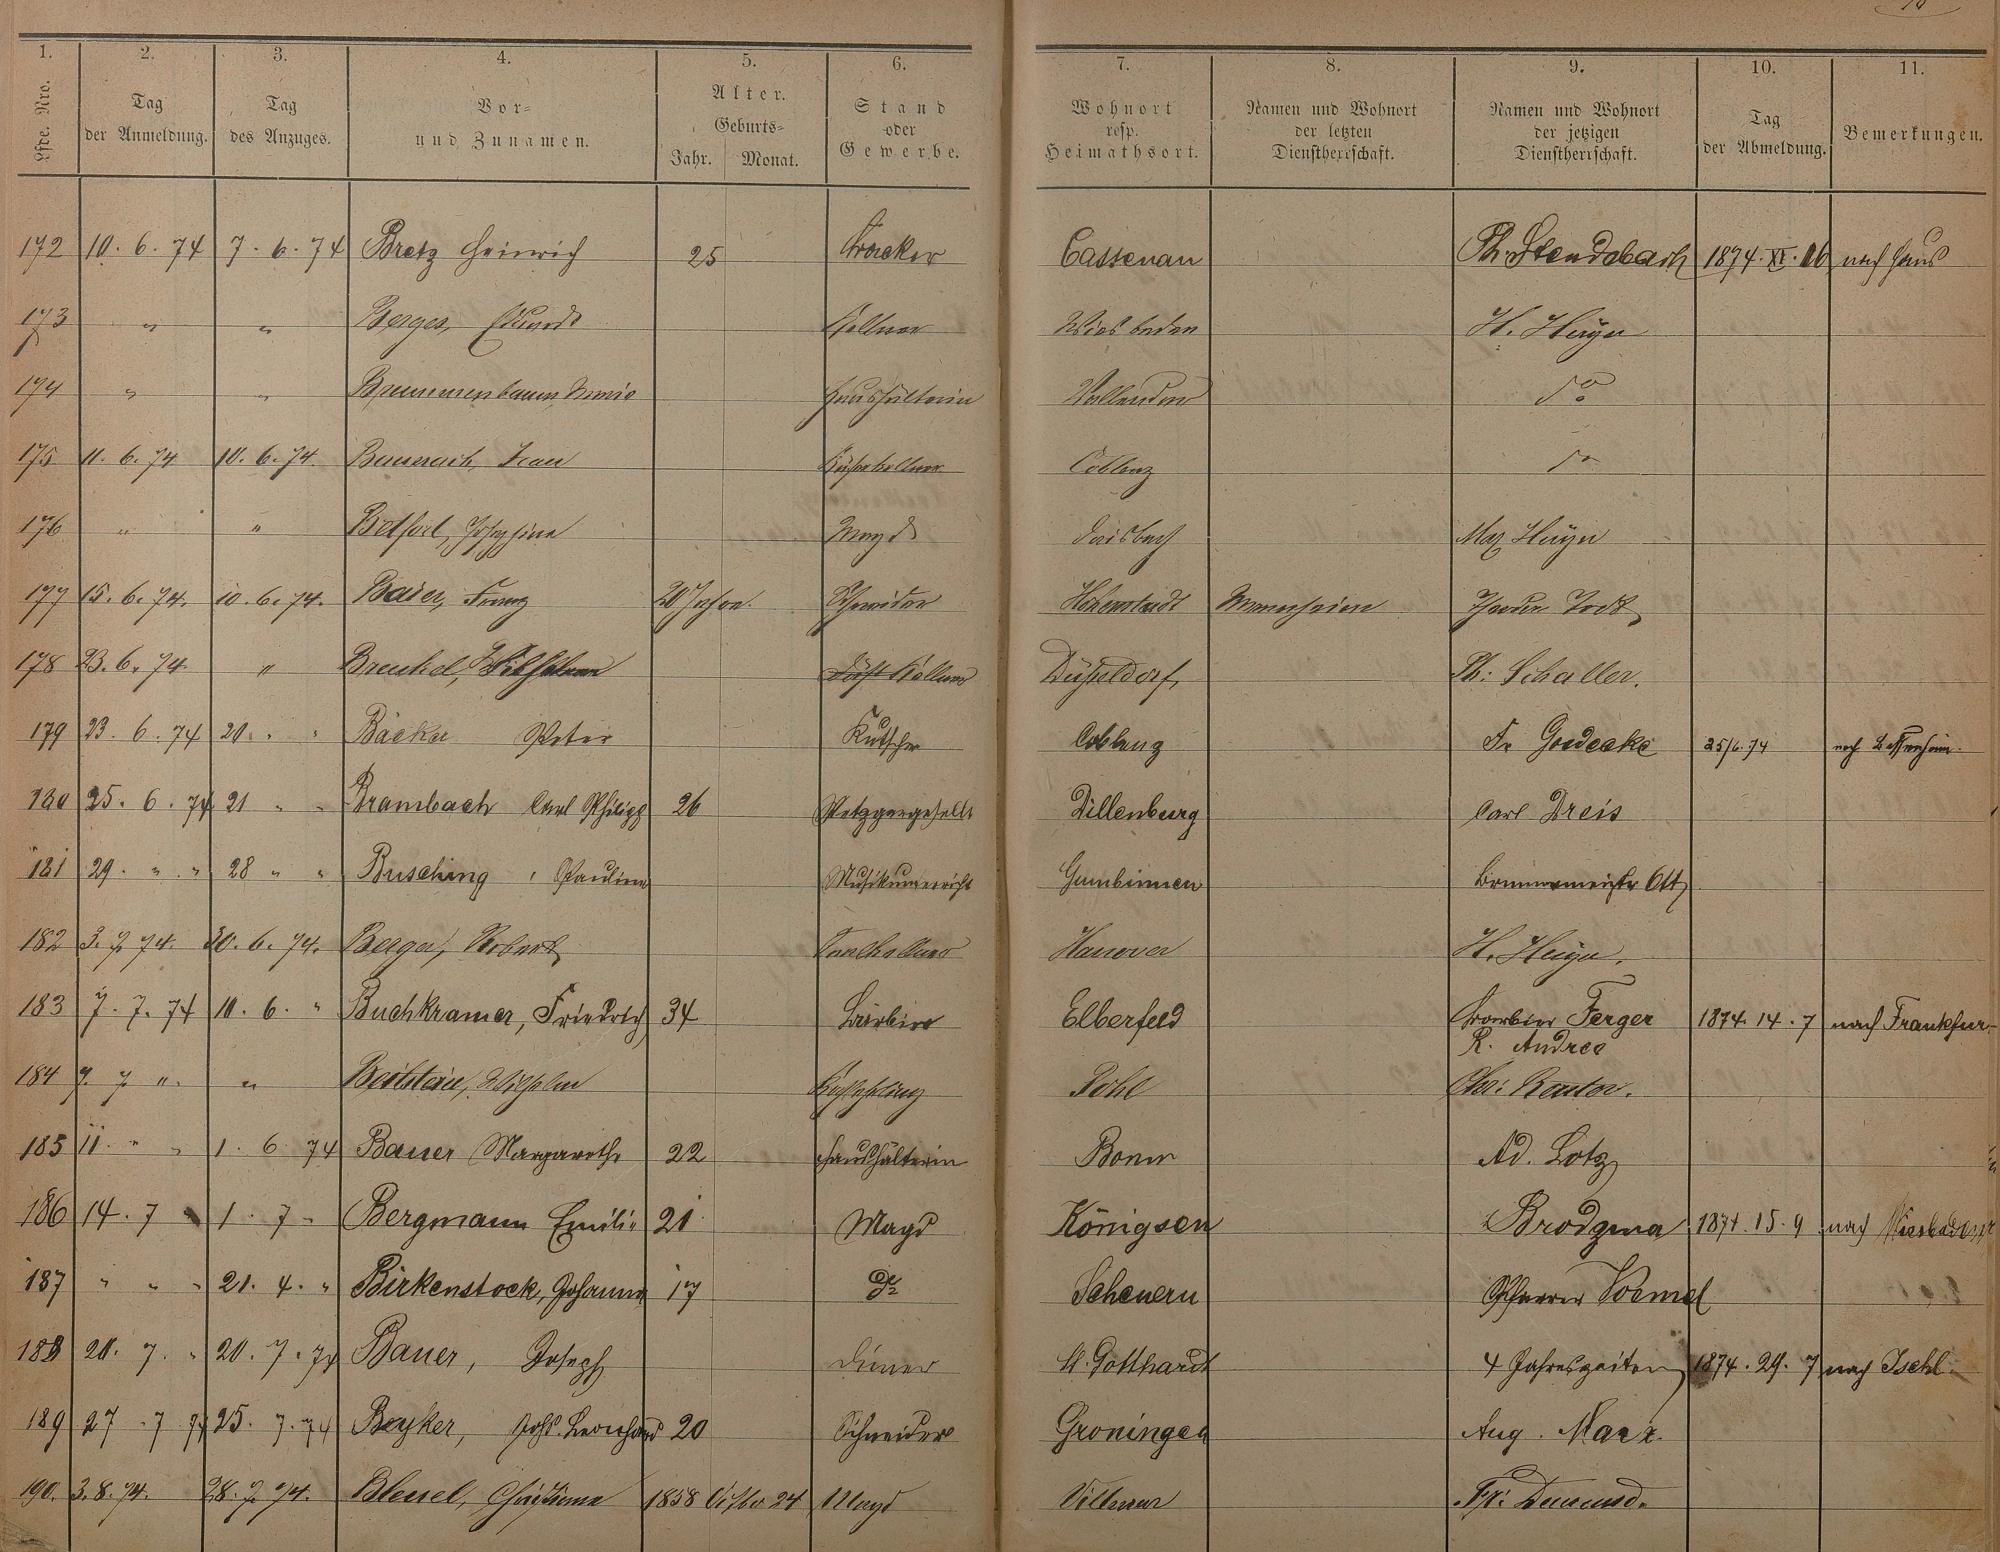 1. 2. 3. 4. 5. 6. 7. 8. 9. 10. 11.
Lfde. Nro. Tag der Anmeldung. Tag des Anzuges. Vor- und Zunamen. Alter. Geburts- Jahr. Monat. Stand oder Gewerbe. Wohnort resp. Heimathsort. Namen und Wohnort der letzten Dienstherrschaft. Namen und Wohnort der jetzigen Dienstherrschaft. Tag der Abmeldung. Bemerkungen.
172 10. 6. 74 7. 6. 74 Bretz Heinrich 25 Cassenau Ph. Stendebach 1874. XI. 16 nach Haus
173 " " Berges, Eduard Kellner Wiesbaden H. Huyn
174 " " Brummenbaum, Marie Haushälterin Vallendar do
175 11. 6. 74 10. 6. 74. Jean Coblenz do
176 " " Josephine Magd Max Huyn
177 15. 6. 74. 10. 6. 74. Baier, Franz 20 Jahre. Schneider Mannheim
178 23. 6. 74 " Breuhel, Kellner Düßeldorf, Ph: Schaller.
179 23. 6. 74 20. " " Bäcker Peter Kutscher Coblenz Fr Goedecke 25/6. 74 nach
180 25. 6. 74 21 " " Brambach Carl Philipp 26 Metzgergeselle Dillenburg Carl Dreis
181 29. " " 28 " " Busching, Pauline Musikunterricht Gumbinnen Brunnenmeister Ott
182 3. 7. 74. 30. 6. 74. Berger, Robert Saalkellner Hanover H. Huyn.
183 7. 7. 74 10. 6. " Buchkramer, Friedrich 34 Barbier Elberfeld Barbier Ferger 1874. 14. 7 nach Frankfur-
R. Andree
184 9. 7 ". " Beilstein, Wilhelm Kochlehrling Pohl Chr: Kantor.
185 11. " " 1. 6 74 Bauer Margarethe 22 Haushälterin Bonn Ad. Lotz
186 14. 7 " 1. 7 " Bergmann Emilie 21 Magd Königsen Brodzina 1874. 15. 9 nach Wiesbaden
187 " " " 21. 4. " Birkenstock, Johanna 17 do Scheuern Pfarrer Vömel
188 20. 7. " 20. 7. 74 Bauer, Joseph Diener St. Gotthardt 4 Jahreszeiten 1874. 29. 7 nach Ischl.
189 27. 7 74 25. 7. 74 Beyker, Johs. Leonhard 20 Schneider Groningen Aug. Marx.
190. 3. 8. 74. 28. 7. 74. Bleuel, Christiane 1858 Octbr 24 Magd Villmar Fr: